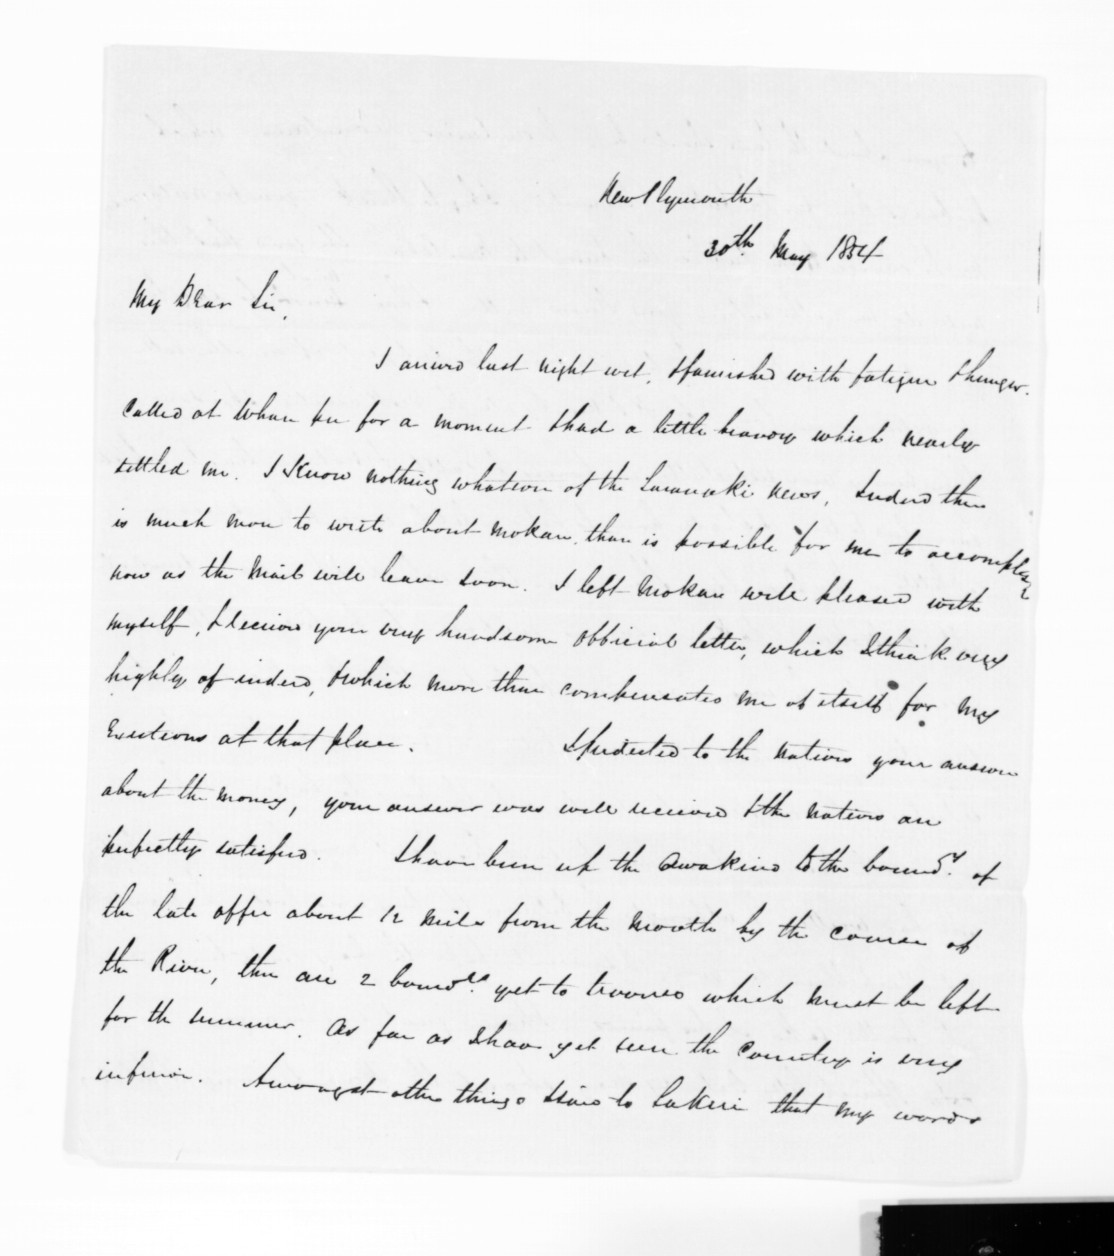 New Plymouth
30th May 1854
My Dear Sir,
I arrived last night wet, & famished with fatigue & hunger.
Called at for a moment & had a little which nearly
settled me. I know nothing whatever of the Taranaki news, Indeed there
is much more to write about Mokau, than is possible for me to accomplish
now as the Mail will leave soon. I left Mokau well pleased with
myself, & received your very handsome official letter, which I think very
highly of indeed, & which more than compensates me of itself for my
Exertions at that place. to the natives your answer
about the money, your answer was well received & the natives are
perfectly satisfied. I have been up the Awakino to the boundy. of
the late offer about 12 miles from the mouth by the course of
the River, there are 2 bounds. yet to traverse which must be left
for the summer. As far as I have yet seen the Country is very
inferior. Amongst other things I said to Takerei that my words